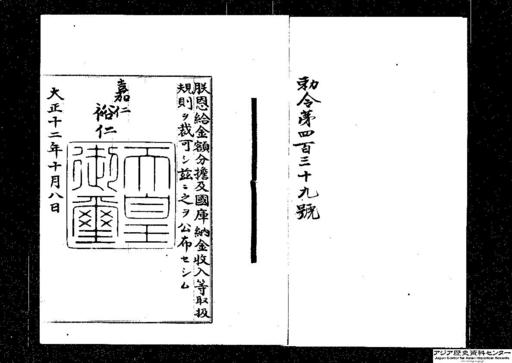 勅令第四百三十九號
朕恩給金額分擔及國庫納金收入等取扱
規則ヲ裁可シ茲ニ之ヲ公布セシム
嘉仁
裕仁
天皇
御璽
大正十二年十月八日
アジア歴史資料センター
Japan Center for Asian Historical Records